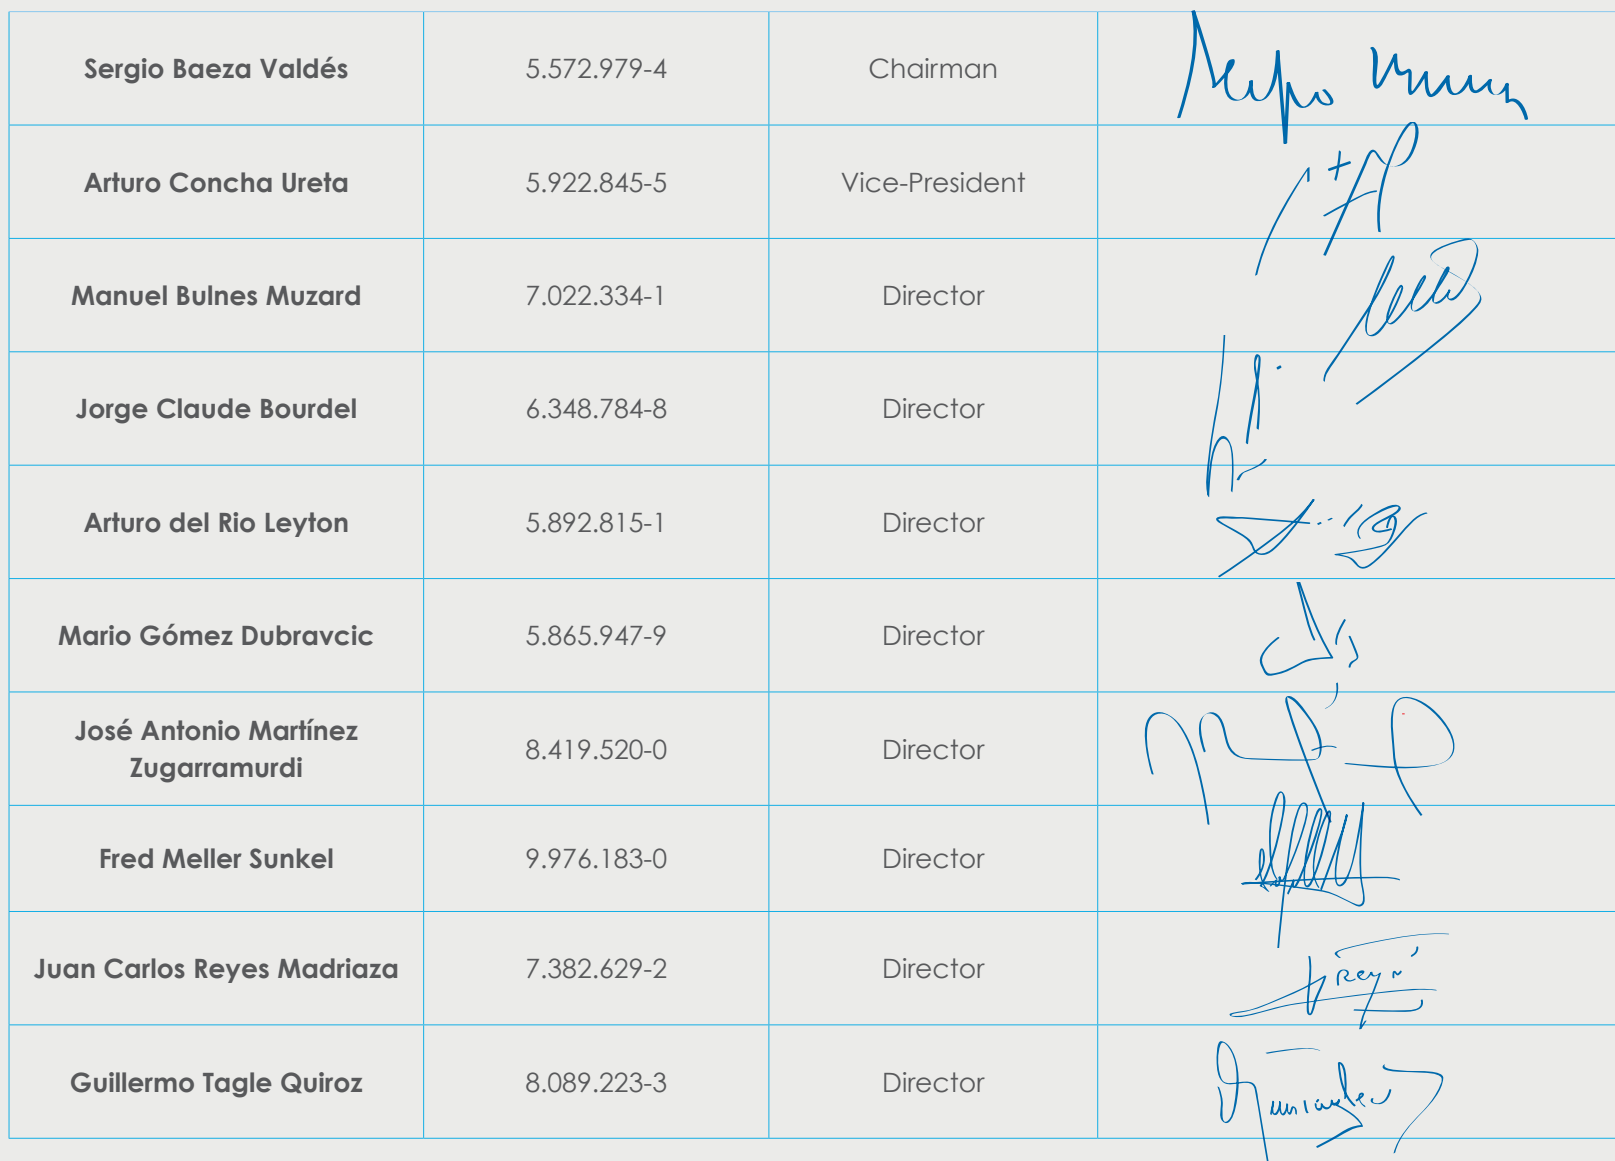 Sergio Baeza Valdés 5.572.979-4 Chairman
Arturo Concha Ureta 5.922.845-5 Vice-President
Manuel Bulnes Muzard 7.022.334-1 Director
Jorge Claude Bourdel 6.348.784-8 Director
Arturo del Rio Leyton 5.892.815-1 Director
Mario Gómez Dubravcic 5.865.947-9 Director
José Antonio Martínez
Zugarramurdi 8.419.520-0 Director
Fred Meller Sunkel 9.976.183-0 Director
Juan Carlos Reyes Madriaza 7.382.629-2 Director
Guillermo Tagle Quiroz 8.089.223-3 Director